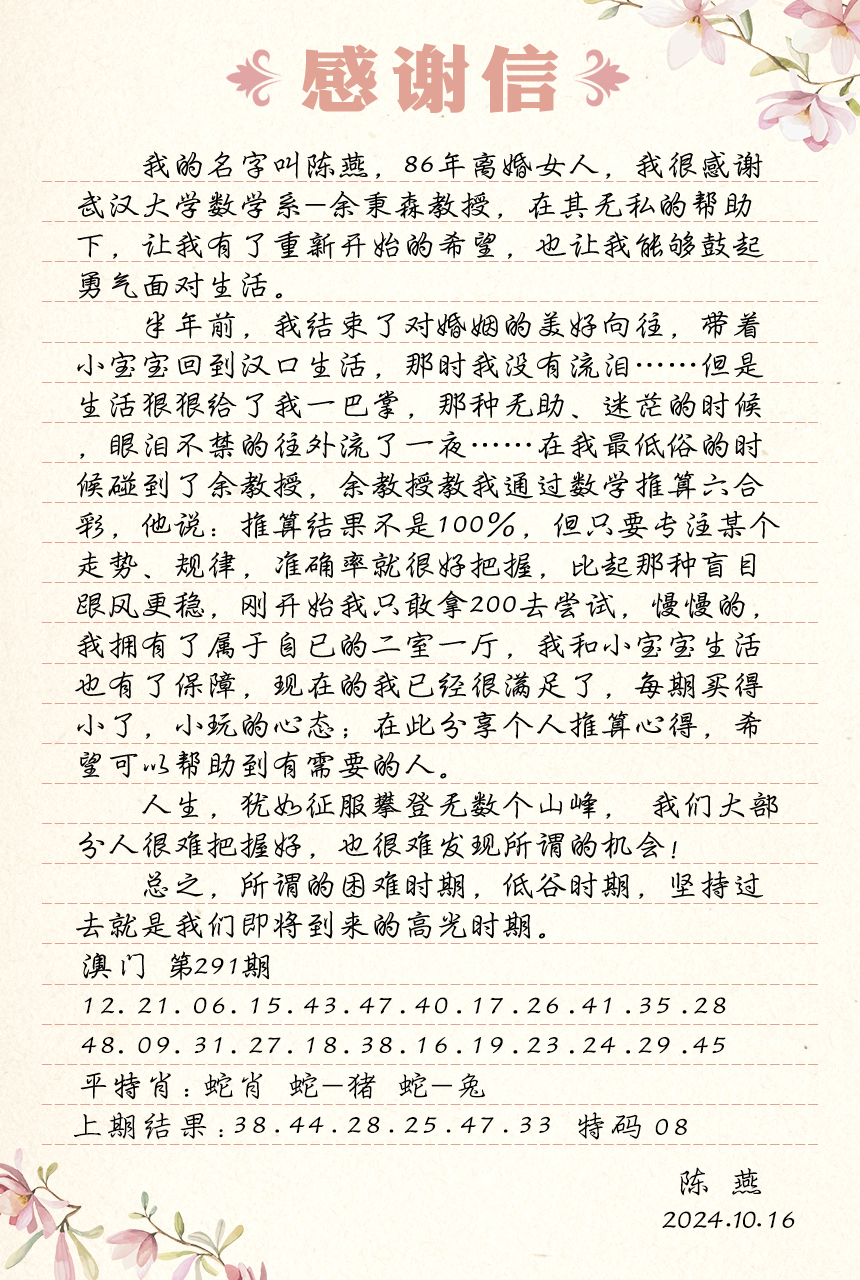 感谢信
我的名字叫陈燕，86年离婚女人，我很感谢
武汉大学数学系—余秉森教授，在其无私的帮助
下，让我有了重新开始的希望，也让我能够鼓起
勇气面对生活。
半年前，我结束了对婚姻的美好向往，带着
小宝宝回到汉口生活，那时我没有流泪……但是
生活狠狠给了我一巴掌，那种无助、迷茫的时候
，眼泪不禁的往外流了一夜……在我最低俗的时
候碰到了余教授，余教授教我通过数学推算六合
彩，他说：推算结果不是100%，但只要专注某个
走势、规律，准确率就很好把握，比起那种盲目
跟风更稳，刚开始我只敢拿200去尝试，慢慢的，
我拥有了属于自已的二室一厅，我和小宝宝生活
也有了保障，现在的我已经很满足了，每期买得
小了，小玩的心态；在此分享个人推算心得，希
望可以帮助到有需要的人。
人生，犹如征服攀登无数个山峰， 我们大部
分人很难把握好，也很难发现所谓的机会！
总之，所谓的困难时期，低谷时期，坚持过
去就是我们即将到来的高光时期。
澳门 第291期
12.21.06.15.43.47.40.17.26.41.35.28
48.09.31.27.18.38.16.19.23.24.29.45
平特肖：蛇肖 蛇—猪 蛇—兔
上期结果：38.44.28.25.47.33 特码 08
陈 燕
2024.10.16